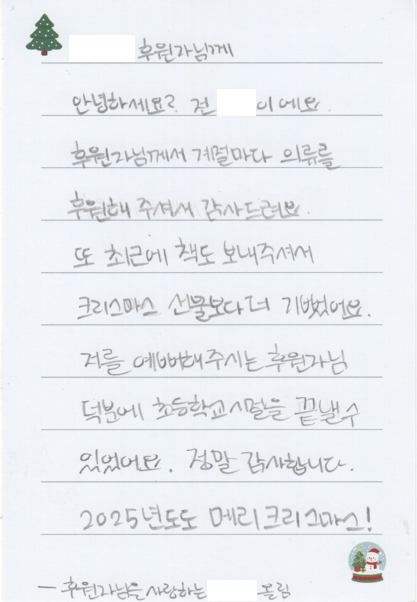 후원자님께
안녕하세요? 전 이에요.
후원자님께서 계절마다 의류를
후원해 주셔서 감사드려요.
또 최근에 책도 보내주셔서
크리스마스 선물보다 더 기뻤어요.
저를 예뻐해주시는 후원자님
덕분에 초등학교 시절을 끝낼 수
있었어요. 정말 감사합니다.
2025년도도 메리크리스마스!
- 후원자님을 사랑하는 올림